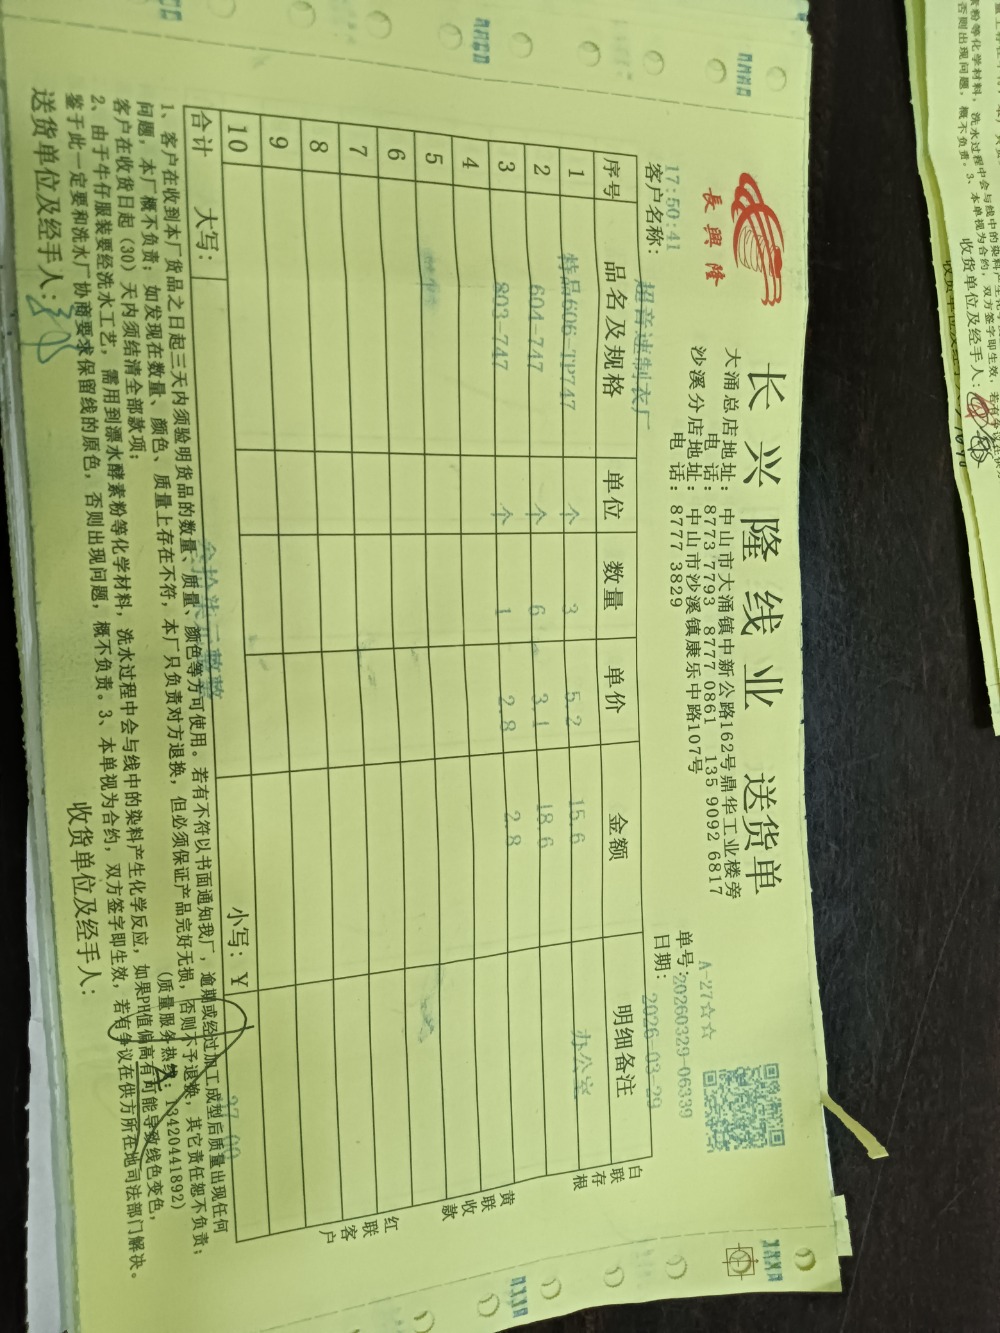 長興隆
长兴隆线业 送货单
大涌总店地址：中山市大涌镇中新公路162号鼎华工业楼旁
电 话：8773 7793 8777 0861 135 9092 6817
沙溪分店地址：中山市沙溪镇康乐中路107号
电 话：8777 3829
A-27☆☆
单号：20260329-06339
日期：2026-03-29
17:50:41
客户名称：超音速制衣厂
序号 品名及规格 单位 数量 单价 金额 明细备注
1 特品606-TP747 个 3 5.2 15.6 办公室
2 604-747 个 6 3.1 18.6
3 803-747 个 1 2.8 2.8
4
5
6
7
8
9
10
合计 大写：叁拾柒元整 小写：Y 37.00
白联存根
黄联收款
红联客户
1、客户在收到本厂货品之日起三天内须验明货品的数量、质量、颜色等方可使用。若有不符以书面通知我厂，逾期或经过加工成型后质量出现任何
问题，本厂概不负责；如发现在数量、颜色、质量上存在不符，本厂只负责对方退换，但必须保证产品完好无损，否则不予退换，其它责任恕不负责；
客户在收货日起（30）天内须结清全部款项； （质量服务热线：13420441892）
2、由于牛仔服装要经洗水工艺，需用到漂水酵素粉等化学材料，洗水过程中会与线中的染料产生化学反应，如果PH值偏高有可能导致线色变色，
鉴于此一定要和洗水厂协商要求保留线的原色，否则出现问题，概不负责。3、本单视为合约，双方签字即生效，若有争议在供方所在地司法部门解决。
送货单位及经手人： 收货单位及经手人：
素粉等化学材料，洗水过程中会与线中的染料产生
否则出现问题，概不负责。3、本单视为合约，双方签字即生效，若有争议在供方
收货单位及经手人：